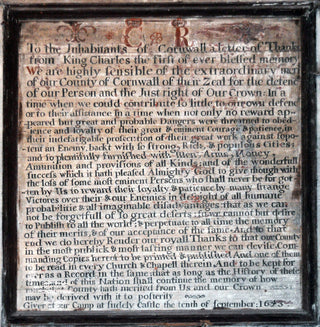 C R
To the Inhabitants of Cornwall a letter of Thanks
from King Charles the First of ever blessed memory
We are highly sensible of the extraordinary merit
of our County of Cornwall of their Zeal for the defence
of our Person and the Just Rights of our Crown. In a
time when we could contribute so little to our own defence
or to their assistance in a time when not only no reward ap-
peared but great and probable Dangers were threatned to obedi-
ence and loyalty of their great & eminent Courage & patience in
their indefatigable prosecution of their great work against so po-
tent an Enemy, backt with so strong, Rich, & populous Cities;
and so plentifully Furnished with Men, Arms, Money,
Amunition and provisions of all Kinds, and of the wonderfull
success which it hath pleased Almighty God to give though with
the loss of some most eminent Persons who shall never be forgot-
ten by Us to reward their loyalty & patience by many strange
Victories over their & our Enemies in despight of all humane
probabilitie & all imaginable disadvantages, that as we can
not be forgetfull of so great deserts, so we cannot but desire
to Publish to all the world & perpetuate to all time the memory
of their merits, & of our acceptance of the same. And to that
end we do hereby Render our royall Thanks to that our County
in the most publick & most lasting manner we can devise. Com-
manding Copies hereof to be printed & published And one of them
to be read in every Church & Chappell therein And to be kept for
ever as a Record in the same that as long as the History of these
times and of this Nation shall continue the memory of how
County hath merited from Us and our Crown
may be derived with it to posterity
Given at our Camp at Sudely Castle the tenth of September: 1643